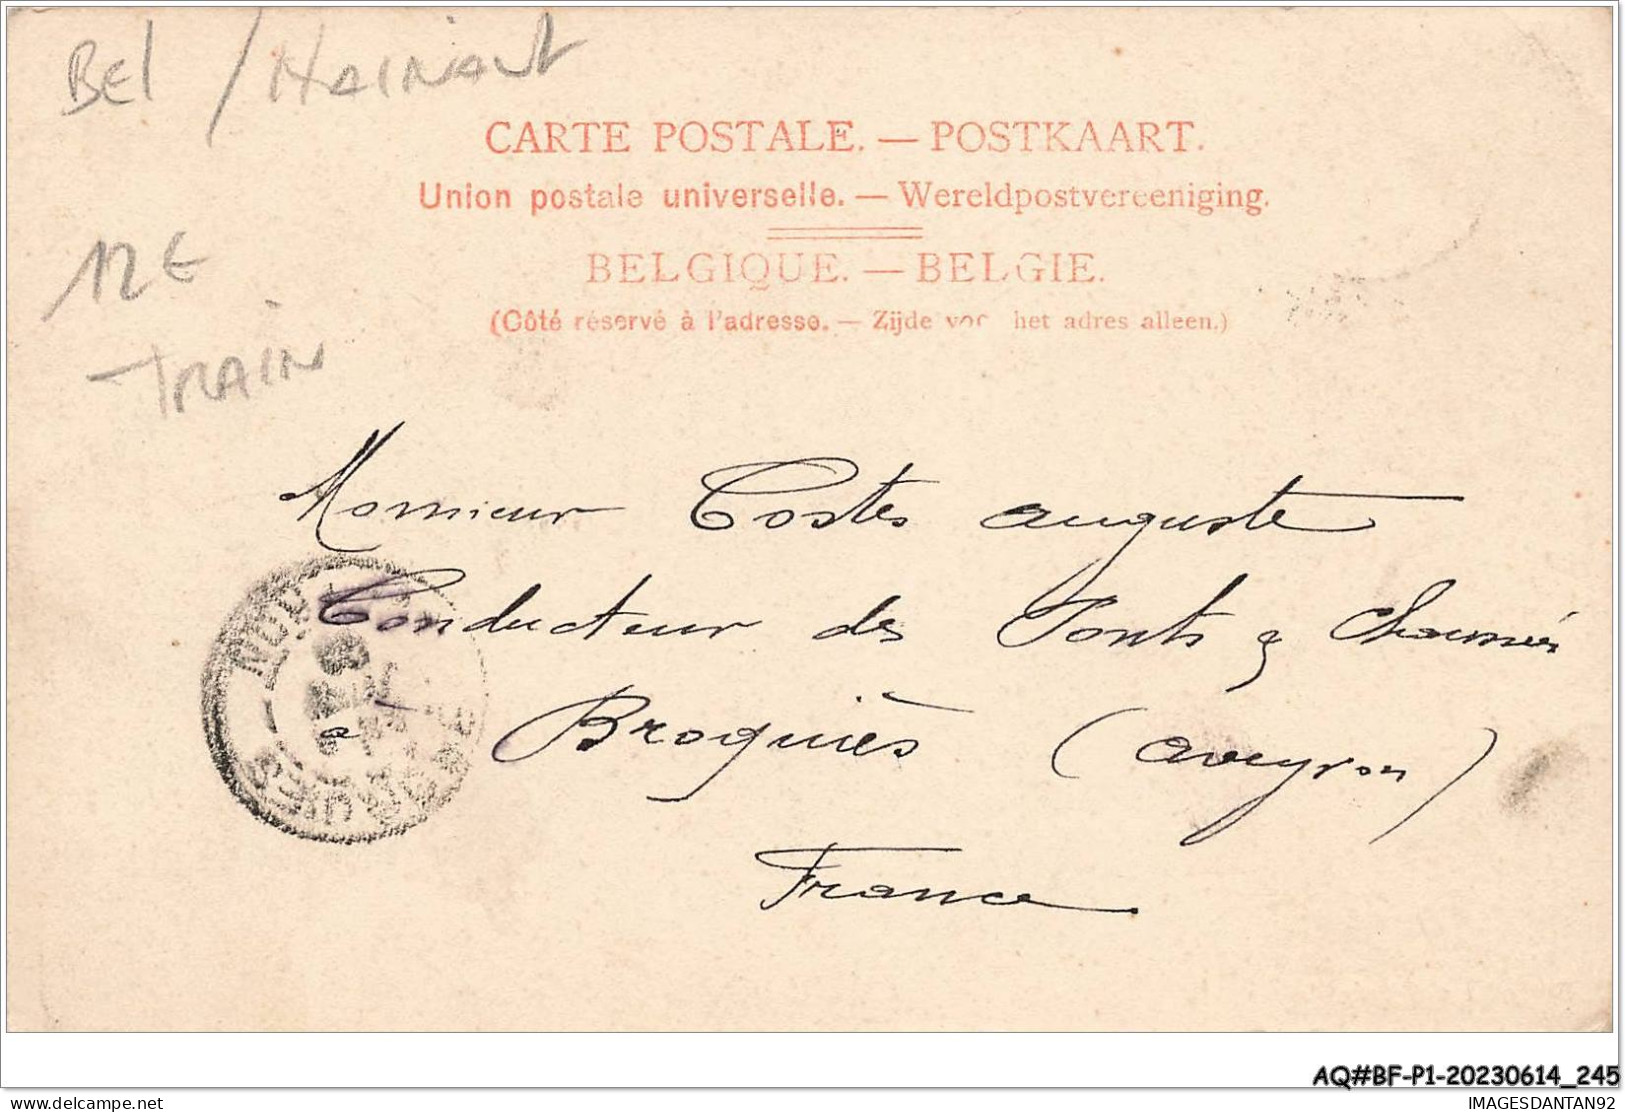 Bel / Hainaut
CARTE POSTALE. — POSTKAART.
Union postale universelle. — Wereldpostvereeniging.
12€
BELGIQUE. — BELGIE.
(Côté réservé à l'adresse. — Zijde voo het adres alleen.)
TRAIN
Monsieur Costes auguste
Conducteur des Ponts & Chaussées
a Broquiès (aveyron)
France
AQ#BF-P1-20230614_245
delcampe.net
IMAGESDANTAN92